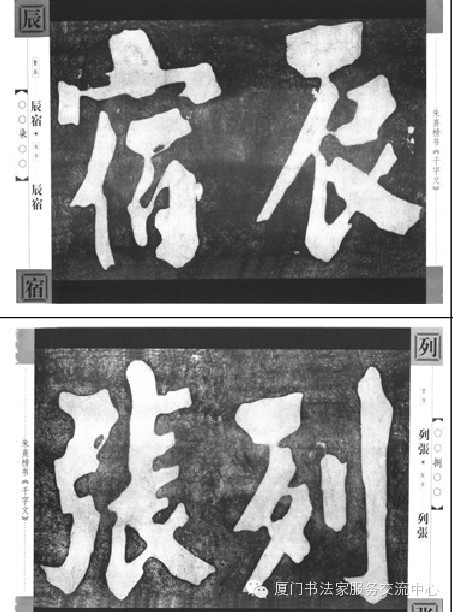 辰宿
朱熹榜书《千字文》
辰
辰宿
辰宿
宿
列張
列
列張
列張
張
朱熹榜书《千字文》
厦门书法家服务交流中心